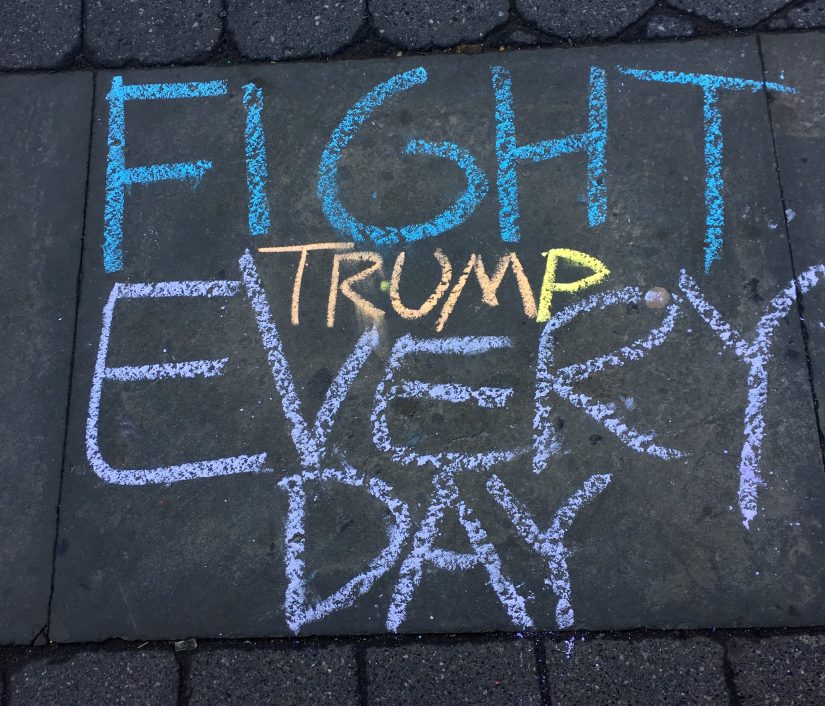 FIGHT
TRUMP
EVERY
DAY